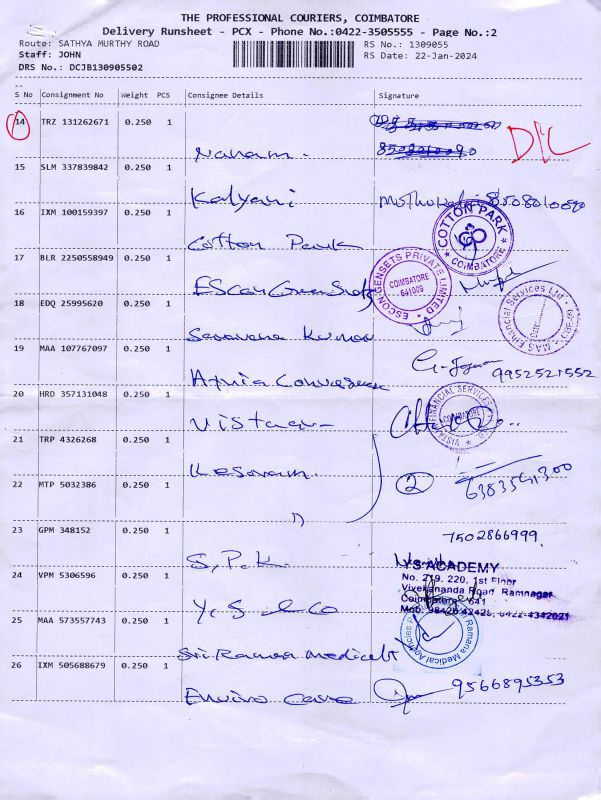 THE PROFESSIONAL COURIERS, COIMBATORE
Delivery Runsheet - PCX - Phone No.:0422-3505555 - Page No.:2
Route: SATHYA MURTHY ROAD RS No.: 1309055
Staff: JOHN RS Date: 22-Jan-2024
DRS No.: DCJB130905502
S No Consignment No Weight PCS Consignee Details Signature
14 TRZ 131262671 0.250 1
8508010090
15 SLM 337839842 0.250 1
Kalyani 8508010090
16 IXM 100159397 0.250 1
Cotton Park COTTON PARK COIMBATORE
17 BLR 2250558949 0.250 1
ESCON GENSETS PRIVATE LIMITED COIMBATORE 641009
18 EDQ 25995620 0.250 1
Saravana Kumar MAS Financial Services Ltd
19 MAA 107767097 0.250 1
9952521552
20 HRD 357131048 0.250 1
Vistaar FINANCIAL SERVICES COIMBATORE
21 TRP 4326268 0.250 1
Kesavam 2 6383541300
22 MTP 5032386 0.250 1
"
23 GPM 348152 0.250 1
7502866999
S.P.K.
24 VPM 5306596 0.250 1
YS ACADEMY
No. 219, 220, 1st Floor
Vivekananda Road, Ramnagar
Coimbatore 641
Mob: 98420 42428, 0422-4342021
25 MAA 573557743 0.250 1
Sri Ramana Medical Ramana Medical Agencies
26 IXM 505688679 0.250 1
Enviro Care 9566895353